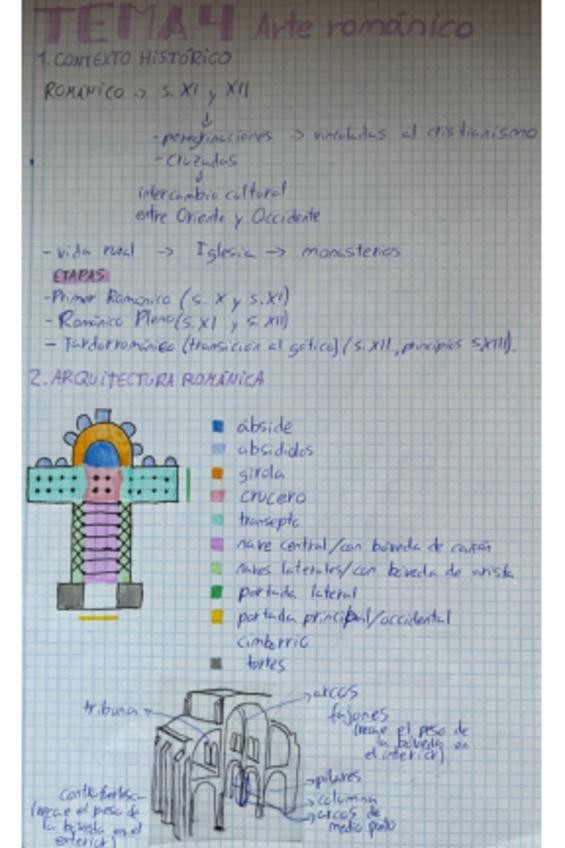 TEMA 4 Arte románico
1. CONTEXTO HISTÓRICO
ROMÁNICO -> S. XI y XII
-peregrinaciones -> vinculadas al cristianismo
-cruzadas
intercambio cultural
entre Oriente y Occidente
- vida rural -> Iglesia -> monasterios
ETAPAS
-Primer Romanico (s. X y s.XI)
- Románico Pleno (s.XI y s.XII)
- Tardorrománico (transición al gótico) (s.XII, principios s.XIII).
2. ARQUITECTURA ROMÁNICA
ábside
absididos
girola
crucero
transepto
nave central/con bóveda de cañón
naves laterales/con bóveda de arista
portada lateral
portada principal/occidental
cimborrio
torres
tribuna
arcos
fajones
(recae el peso de
la bóveda en
el interior)
pilares
columna
arcos de
medio punto
contrafuertes
(recae el peso de
la bóveda en el
exterior)